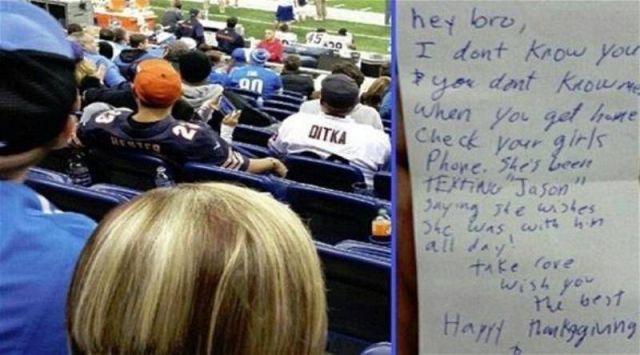 HESTER
23
DITKA
90
45
hey bro,
I dont know you
& you dont know me
When you get home
Check your girls
Phone. She's been
TEXTING "Jason"
Saying she wishes
She was with him
all day!
take care
wish you
the best
Happy Thanksgiving